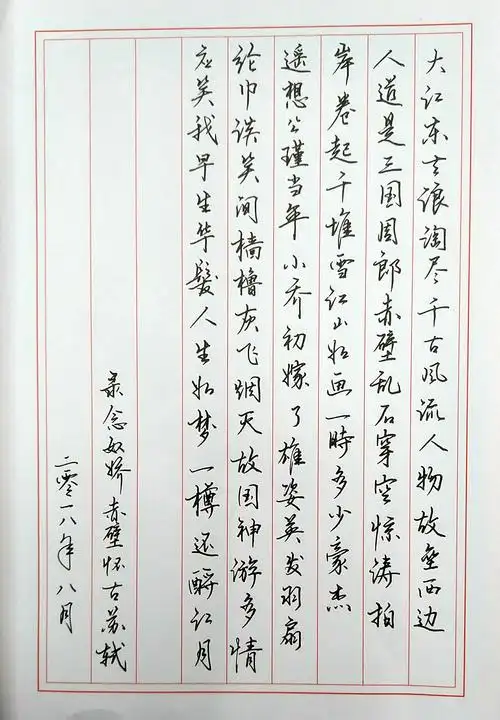 大江东去浪淘尽千古风流人物故垒西边
人道是三国周郎赤壁乱石穿空惊涛拍
岸卷起千堆雪江山如画一时多少豪杰
遥想公瑾当年小乔初嫁了雄姿英发羽扇
纶巾谈笑间樯橹灰飞烟灭故国神游多情
应笑我早生华发人生如梦一樽还酹江月
录念奴娇赤壁怀古苏轼
二零一八年八月